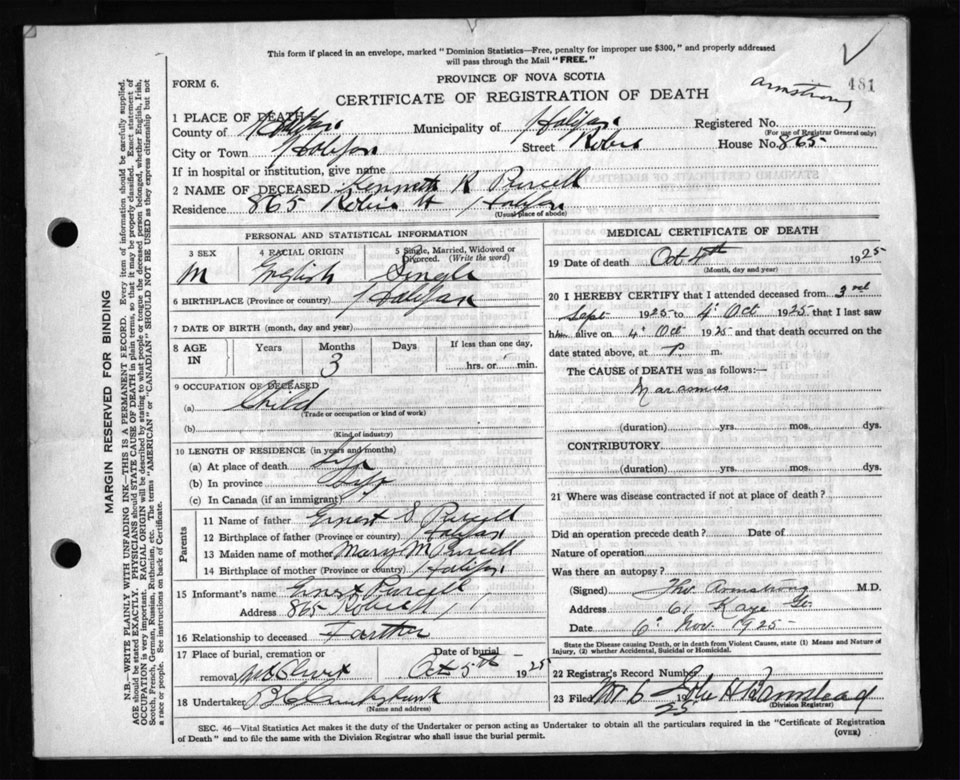 This form if placed in an envelope, marked "Dominion Statistics—Free, penalty for improper use $300," and properly addressed
will pass through the Mail "FREE."
FORM 6.
PROVINCE OF NOVA SCOTIA
Armstrong 481
CERTIFICATE OF REGISTRATION OF DEATH
1 PLACE OF DEATH
County of Halifax Municipality of Halifax Registered No.
(For use of Registrar General only)
City or Town Halifax Street Robie House No. 865
If in hospital or institution, give name
2 NAME OF DECEASED Kenneth R Purcell
Residence 865 Robie St Halifax
(Usual place of abode)
PERSONAL AND STATISTICAL INFORMATION
3 SEX 4 RACIAL ORIGIN 5 Single, Married, Widowed or
Divorced. (Write the word)
M English Single
6 BIRTHPLACE (Province or country) Halifax
7 DATE OF BIRTH (month, day and year)
8 AGE IN Years Months Days If less than one day,
3 hrs. or min.
9 OCCUPATION OF DECEASED
(a) Child
(Trade or occupation or kind of work)
(b)
(Kind of industry)
10 LENGTH OF RESIDENCE (in years and months)
(a) At place of death Life
(b) In province Life
(c) In Canada (if an immigrant)
Parents
11 Name of father Ernest S Purcell
12 Birthplace of father (Province or country) Halifax
13 Maiden name of mother Mary M Purcell
14 Birthplace of mother (Province or country) Halifax
15 Informant's name Ernest Purcell
Address 865 Robie St
16 Relationship to deceased Farther
17 Place of burial, cremation or Date of burial
removal Mt Olivet Oct 5th 1925
18 Undertaker
(Name and address)
MEDICAL CERTIFICATE OF DEATH
19 Date of death Oct 4th 1925
(Month, day and year)
20 I HEREBY CERTIFY that I attended deceased from 3rd
Sept 1925 to 4 Oct 1925 that I last saw
him alive on 4 Oct 1925 and that death occurred on
date stated above, at P. m.
The CAUSE of DEATH was as follows:—
Marasmus
(duration) yrs. mos. dys.
CONTRIBUTORY.
(duration) yrs. mos. dys.
21 Where was disease contracted if not at place of death?
Did an operation precede death? Date of
Nature of operation
Was there an autopsy?
(Signed) Tho Armstrong M.D.
Address 61 Kaye St.
Date 6 Nov. 1925
State the Disease Causing Death, or in death from Violent Causes, state (1) Means and Nature of
Injury, (2) whether Accidental, Suicidal or Homicidal.
22 Registrar's Record Number
23 Filed Nov 6 1925 John H Barnstead
(Division Registrar)
SEC. 46—Vital Statistics Act makes it the duty of the Undertaker or person acting as Undertaker to obtain all the particulars required in the "Certificate of Registration
of Death" and to file the same with the Division Registrar who shall issue the burial permit.
(OVER)
MARGIN RESERVED FOR BINDING
N.B.—WRITE PLAINLY WITH UNFADING INK—THIS IS A PERMANENT RECORD. Every item of information should be carefully supplied.
AGE should be stated EXACTLY. PHYSICIANS should STATE CAUSE OF DEATH in plain terms, so that it may be properly classified. Exact statement of
OCCUPATION is very important. RACIAL ORIGIN will be described by stating to what people or tongue the deceased person belonged, whether English, Irish,
Scotch, French, German, Russian, Ruthenian, etc. The terms "AMERICAN" or "CANADIAN" SHOULD NOT BE USED as they express citizenship but not
a race or people. See instructions on back of Certificate.